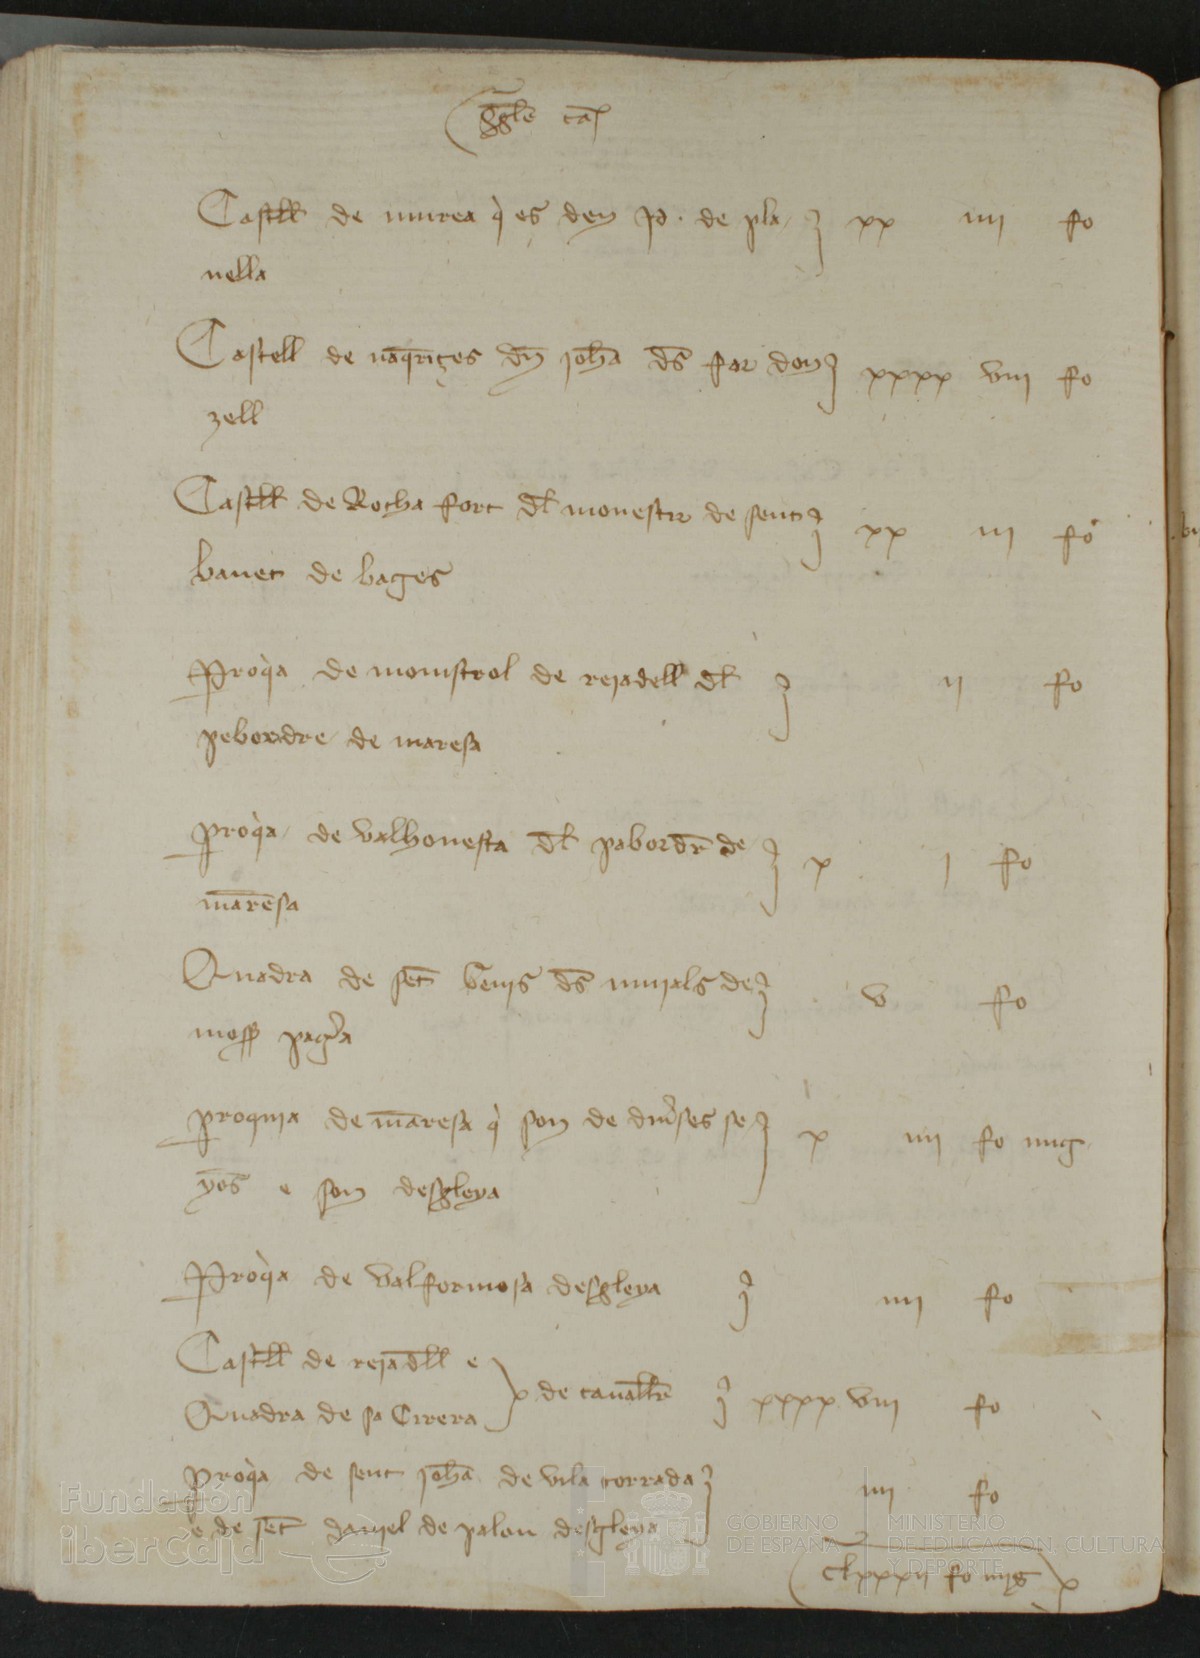 Castell de murea q̀ es den p̃o . de pla
nella
xx iiii fo
Castell de naq̃rẽçes dñ joħa ds̃ far don
zell
xxxx viii fo
Castell de Rocha fort dl̃ monestir de sent
banet de bages
xx iii fo
Proq̀a de monistrol de reiadell dl̃
pebordre de maresa
ii fo
proq̀a de valhonesta dl̃ pabordr̃ de
mãresa
x i fo
Quadra de set̃ de
v fo
proquia de mãresa q̀ son de diũses se
yos̃ e son desgleya
x iiii fo mig
Proq̀a de valformosa desgleya
iiii fo
Castell de reiadll̃ e
Quadra de sa Cirera
de cauall̃r
xxxx viii fo
proq̀a de sent joħa de vila torrada
e de set̃ de palou desgleya
iiii fo
clxxxii fo mig
Fundación
iberCaja
GOBIERNO
DE ESPAÑA
MINISTERIO
DE EDUCACIÓN, CULTURA
Y DEPORTE